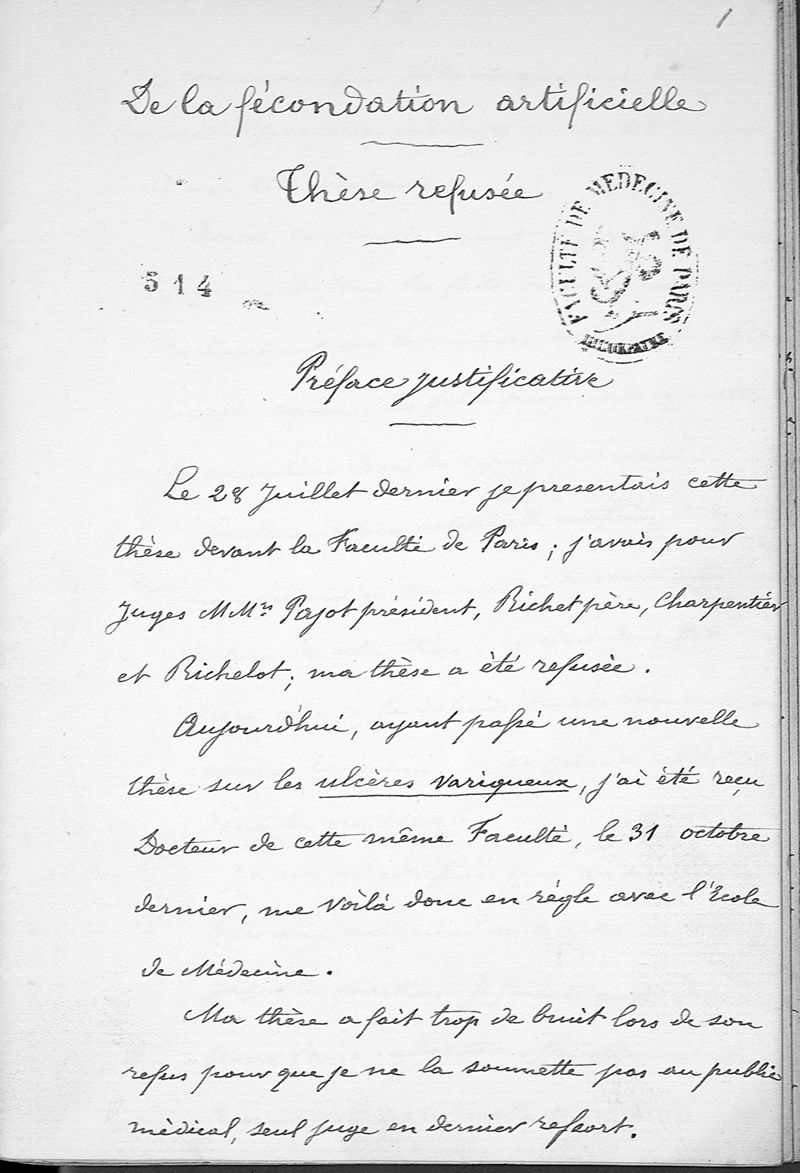 1
De la fécondation artificielle
Thèse refusée
FACULTÉ DE MEDECINE DE PARIS
514
Préface justificative
Le 28 Juillet dernier je presentais cette
thèse devant la Faculté de Paris ; j'avais pour
Juges MMrs Pajot président, Richet père, Charpentier
et Richelot ; ma thèse a été refusée .
Aujourd'hui, ayant passé une nouvelle
thèse sur les ulcères variqueux, j'ai été reçu
Docteur de cette même Faculté, le 31 octobre
dernier, me voilà donc en règle avec l'Ecole
de Médecine .
Ma thèse a fait trop de bruit lors de son
refus pour que je ne la soumette pas au public
médical, seul juge en dernier ressort .